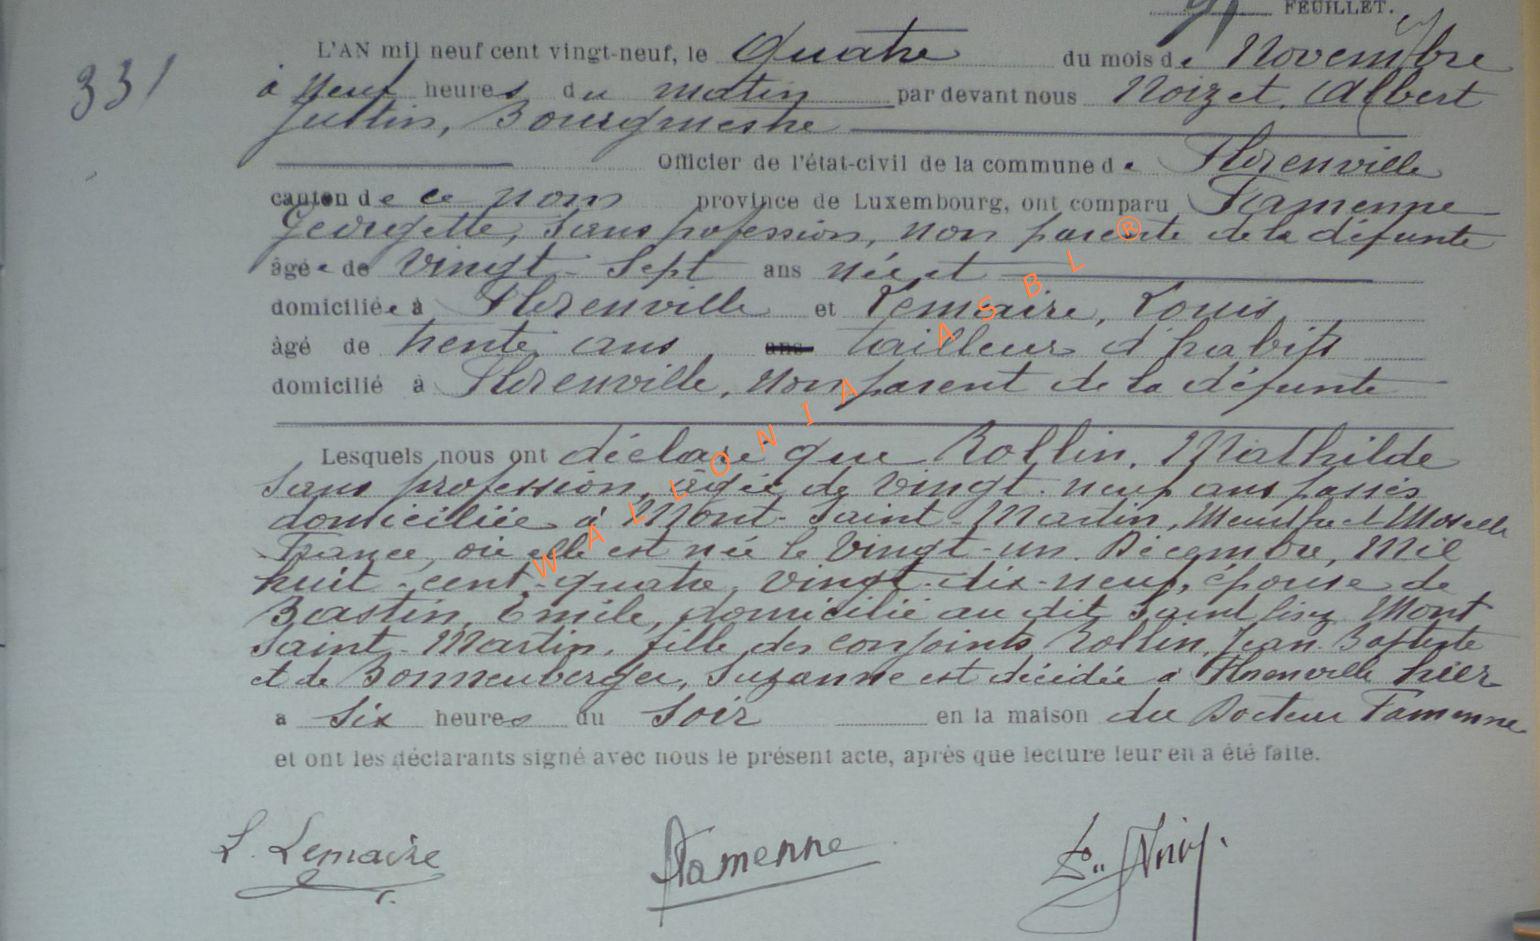 FEUILLET.
331
L'AN mil neuf cent vingt-neuf, le quatre du mois de Novembre
à neuf heures du matin par devant nous Noizet, Albert
Justin, Bourgmestre
Officier de l'état-civil de la commune de Florenville
canton de ce nom province de Luxembourg, ont comparu Famenne
Georgette, sans profession, non parente de la défunte
âgée de Vingt-Sept ans née et
domiciliée à Florenville et Lemaire, Louis
âgé de trente ans, ans tailleur d'habits
domicilié à Florenville, non parent de la défunte
Lesquels nous ont déclaré que Rollin, Mathilde
sans profession, âgée de vingt-neuf ans passés
domiciliée à Mont-Saint-Martin, Meurthe et Moselle
France, où elle est née le vingt-un Décembre, Mil
huit-cent-quatre-vingt-dix-neuf, épouse de
Bastin, Emile, domicilié au dit Mont
Saint-Martin, fille des conjoints Rollin, Jean-Baptiste
et de Bonnenberger, Suzanne est décédée à Florenville hier
a six heures du soir en la maison du Docteur Famenne
et ont les déclarants signé avec nous le présent acte, après que lecture leur en a été faite.
L. Lemaire Famenne
WALLONIA ASBL ®